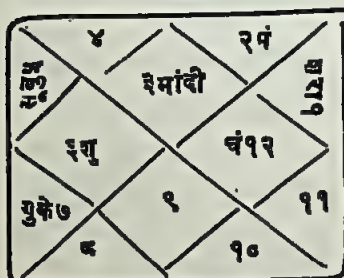 ४
२मं
३मांदी
शरा१
६शु
चं१२
गुके७
९
११
८
१०